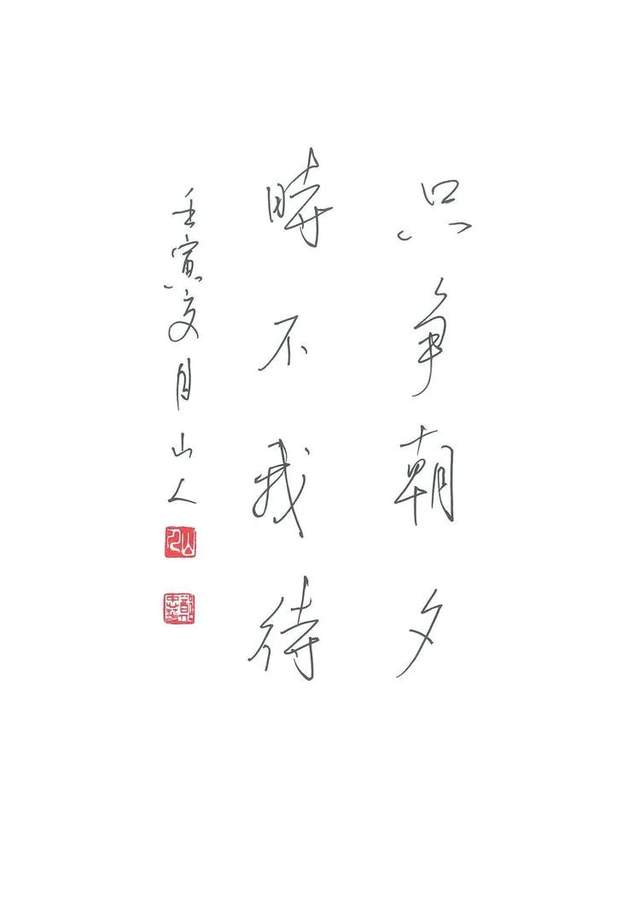 只争朝夕
時不我待
壬寅亥月山人